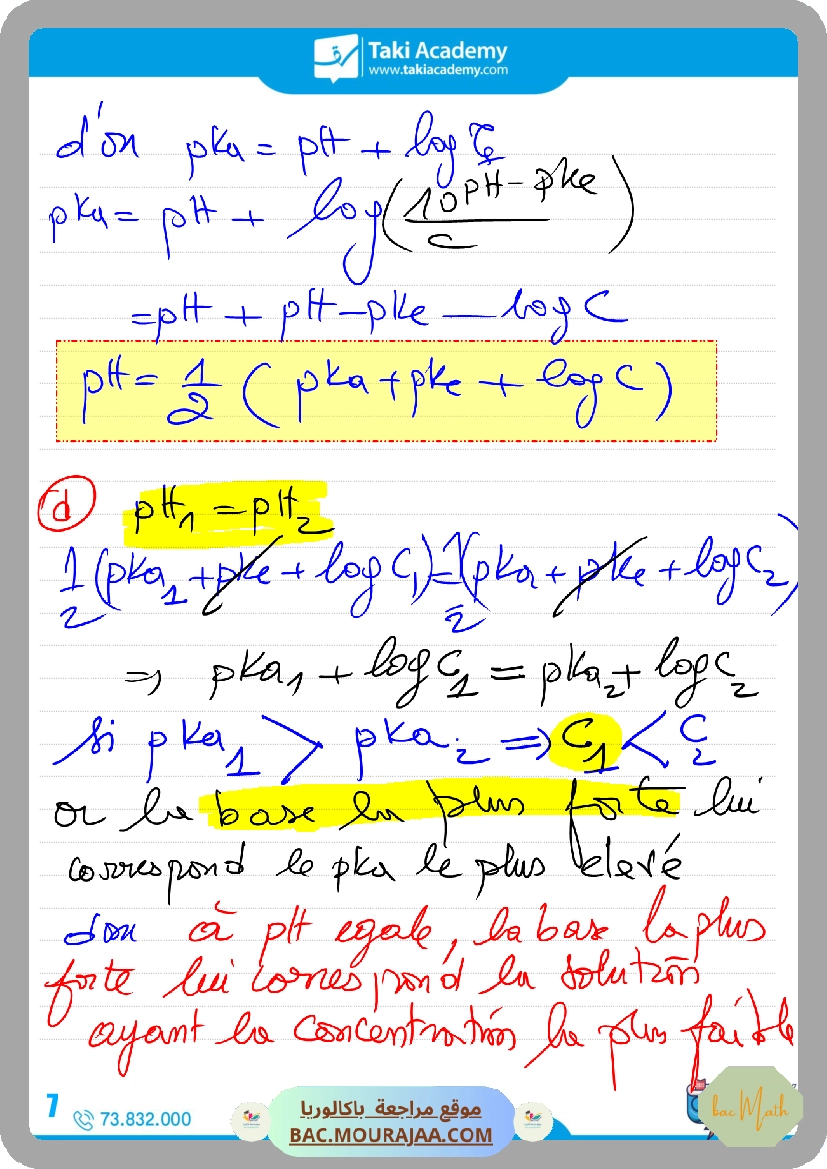 Taki Academy
www.takiacademy.com
d'où pka = pH + log τf
pka = pH + log(10^(pH-pke)/C)
= pH + pH - pke - log C
pH = 1/2 (pka + pke + log C)
d pH1 = pH2
1/2 (pka1 + pke + log C1) = 1/2 (pka + pke + log C2)
⇒ pka1 + log C1 = pka2 + log C2
si pka1 > pka2 ⇒ C1 < C2
or la base la plus forte lui
correspond le pka le plus elevé
donc à pH egale, la base la plus
forte lui correspond la solution
ayant la concentration la plus faible
7 73.832.000
موقع مراجعة باكالوريا
BAC.MOURAJAA.COM
bac Math